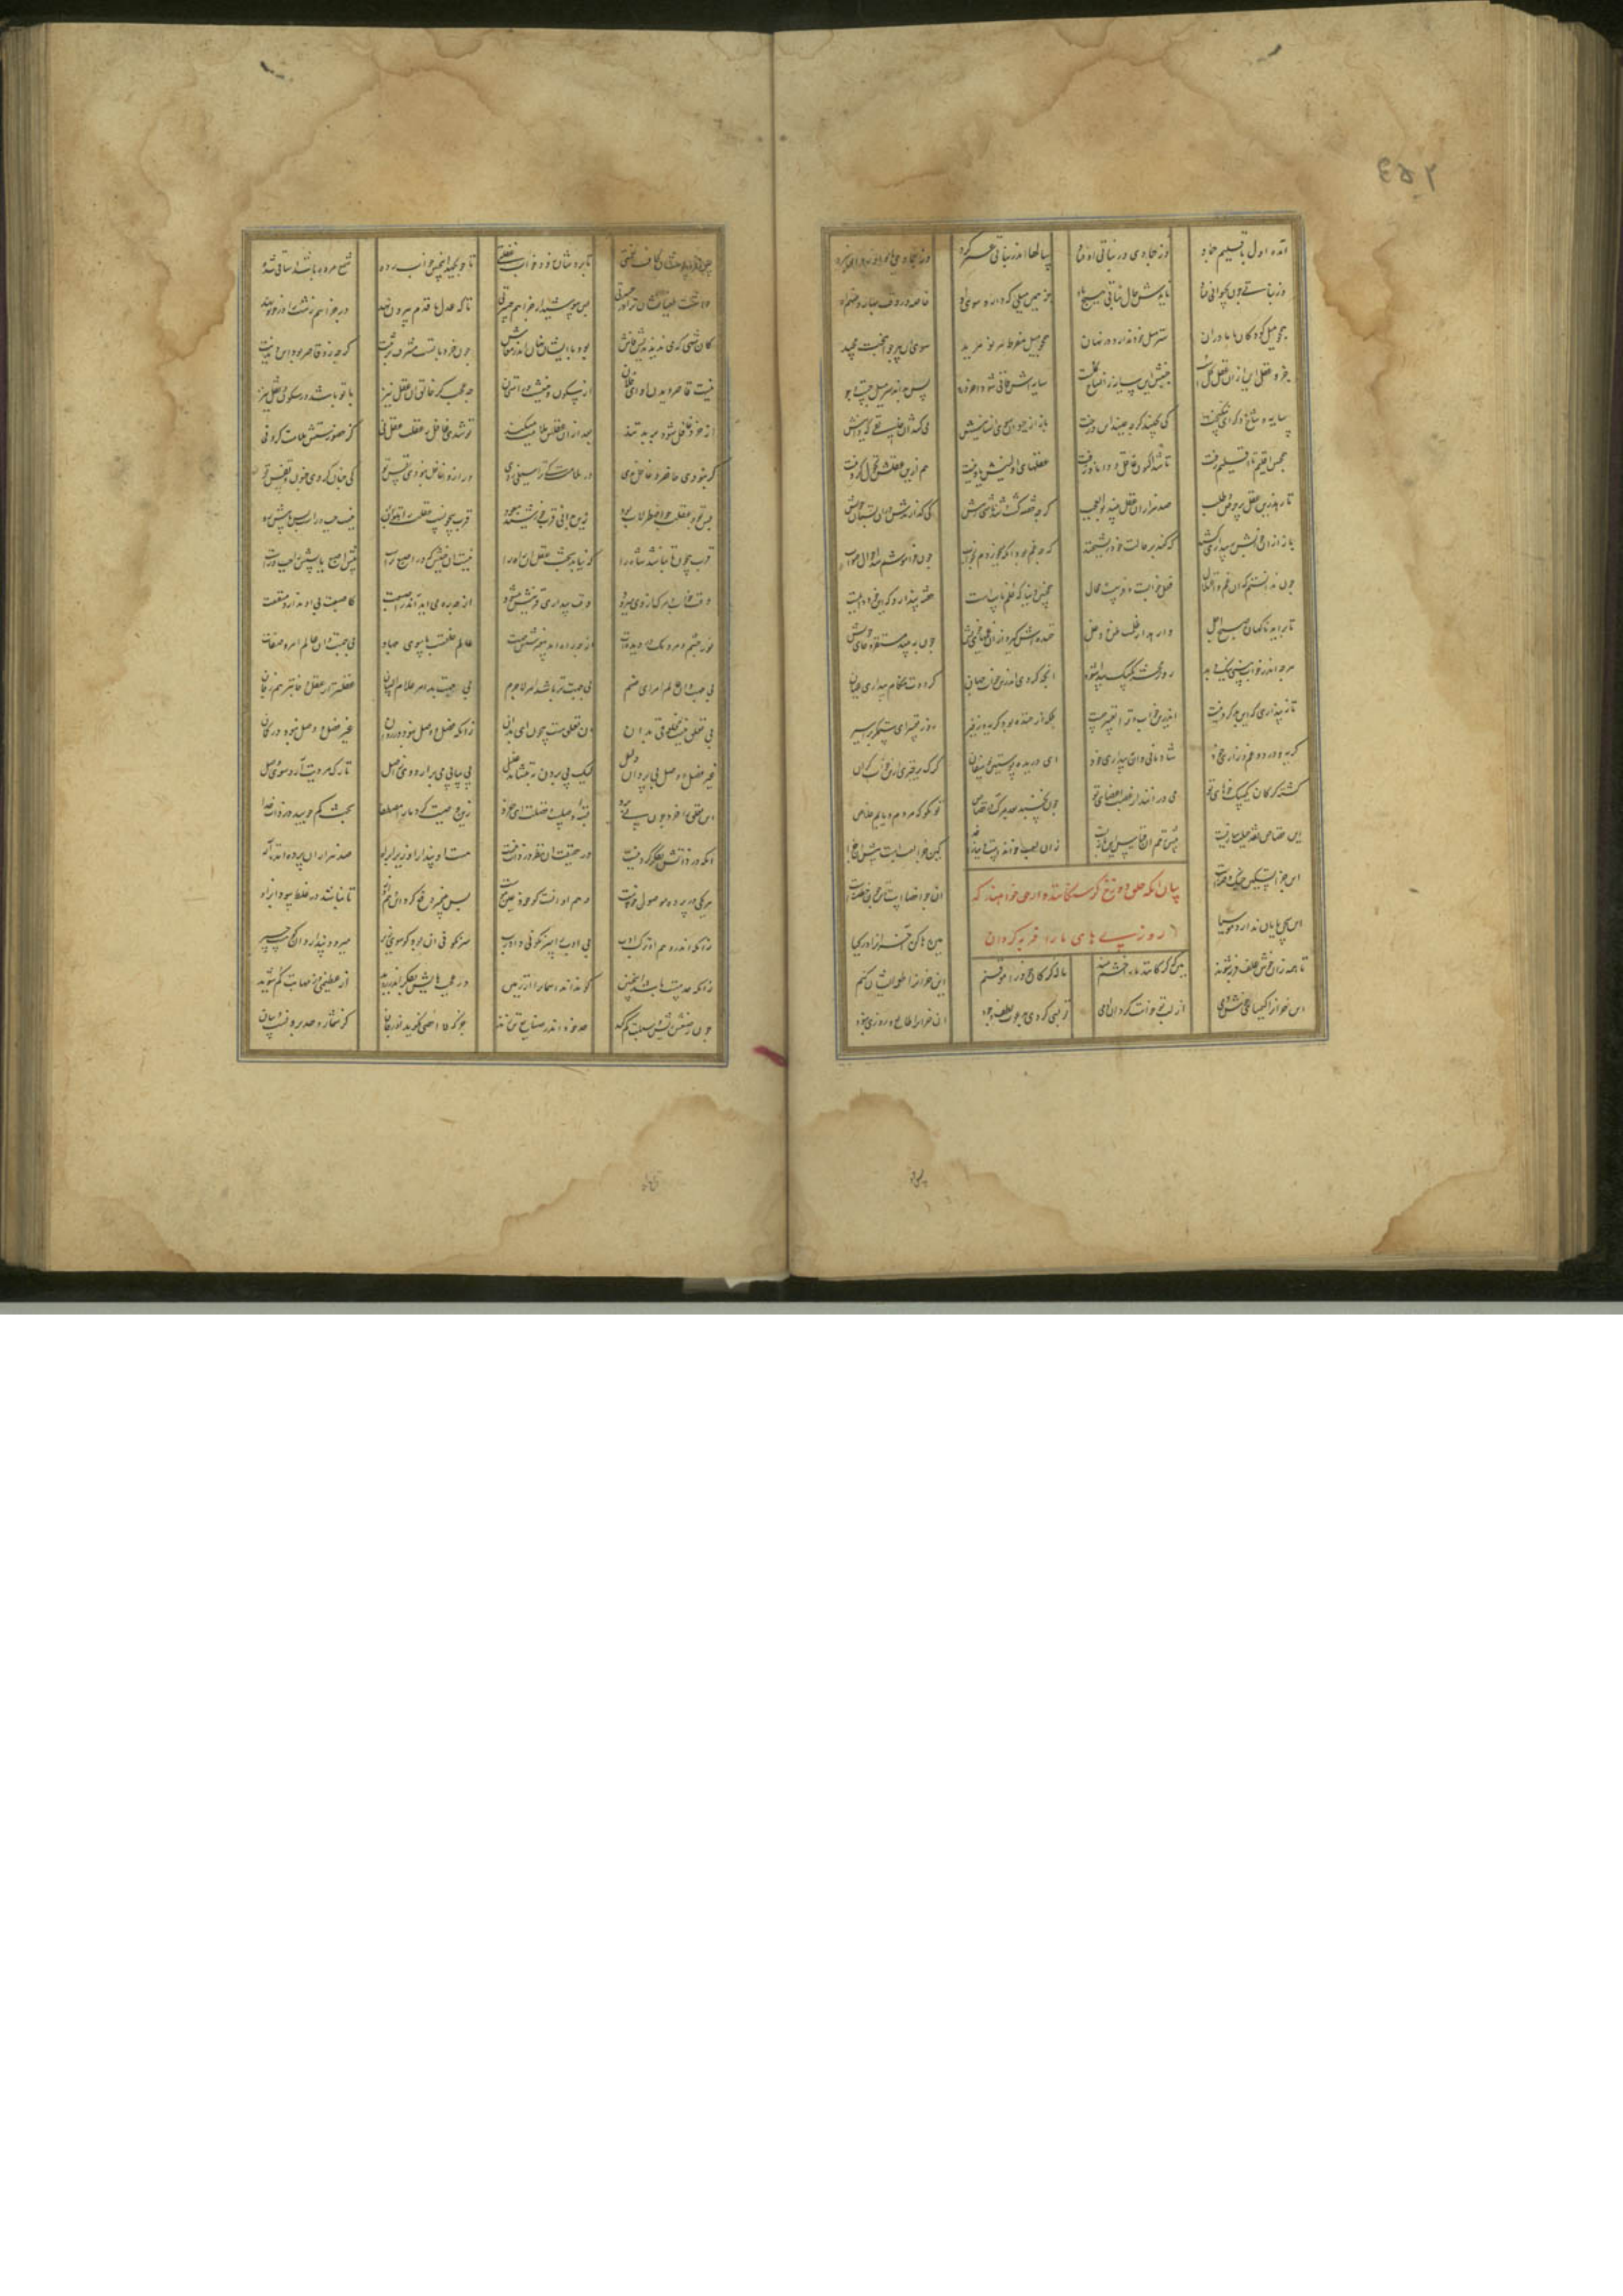 آمده اول باقلیم جماد وز جمادی در نباتی اوفتاد سالها اندر نباتی عمر کرد وز جمادی یاد ناورد از نبرد
وز نباتی چون بحیوانی فتاد نامدش حال نباتی هیچ یاد جز همین میلی که دارد سوی آن خاصه در وقت بهار و ضیمران
همچو میل کودکان با مادران سر میل خود نداند در لبان همچو میل مفرط هر نو مرید سوی آن پیر جوانبخت مجید
جزو عقل این از آن عقل کلست جنبش این سایه زان شاخ گلست سایه‌اش فانی شود آخر درو پس بداند سر میل و جست و جو
سایه و شاخ دگر ای نیکبخت کی بجنبد گر نجنبد این درخت باز از حیوان سوی انسانیش می کشد آن خالقی که دانیش
همچنین اقلیم تا اقلیم رفت تا شد اکنون عاقل و دانا و زفت عقلهای اولینش یاد نیست هم ازین عقلش تحول کردنیست
تا رهد زین عقل پر حرص و طلب صد هزاران عقل بیند بوالعجب گرچه خفته گشت و شد ناسی ز پیش کی گذارندش در آن نسیان خویش
باز از آن خوابش ببیداری کشند که کند بر حالت خود ریشخند که چه غم بود آنکه میخوردم بخواب چون فراموشم شد احوال صواب
چون ندانستم که آن غم و اعتلال فعل خوابست و فریبست و خیال همچنان دنیا که حلم نایمست خفته پندارد که این خود دایمست
تا برآید ناگهان صبح اجل وارهد از ظلمت ظن و دغل خنده‌اش گیرد از آن غمهای خویش چون ببیند مستقر و جای خویش
هرچه اندر خواب بینی نیک و بد روز محشر یک بیک پیدا شود آنچه کردی اندرین خواب جهان گرددت هنگام بیداری عیان
تا نپنداری که این بد کردنیست اندرین خواب و ترا تعبیر نیست بلکه این خنده بود گریه و زفیر روز تعبیر ای ستمگر بر اسیر
گریه و درد و غم و زاری خود شادمانی دان ببیداری خود ای دریده پوستین یوسفان گرگ برخیزی ازین خواب گران
گشته گرگان یک بیک خوهای تو می درانند از غضب اعضای تو خون نخسبد بعد مرگت در قصاص تو مگو که مردم و یابم خلاص
این قصاص نقد حیلت سازیست پیش زخم آن قصاص این بازیست زان لعب خواندست دنیا را خدا کین جزا لعبست پیش آن جزا
این جزا تسکین جنگ و فتنه است آن چو اخصا است این چون ختنه است
بیان آنکه خلق دوزخ گرسنگانند و از حق خواهند که
روزیهای ما را فربه گردان
این سخن پایان ندارد موسیا هین رها کن آن خران را در گیا
تا همه زان خوش علف فربه شوند هین که گرگانند ما را خشم مند ناله گرگان خود را موقنیم این خران را طعمه ایشان کنیم
این خران را کیمیای خوش دمی از لب تو خواست کردن آدمی تو بسی کردی بدعوت لطف و جود آن خران را طالع و روزی نبود
پس فرو پوشان لحاف نعمتی تا بردشان زود خواب غفلتی تا چو بجهند از چنین خواب این رده شمع مرده باشد و ساقی شده
داشت طغیانشان ترا در حیرتی پس بنوشند از جزا هم حسرتی تا که عدل ما قدم بیرون نهد در جزا هر زشت را درخور دهد
کان شهی که می ندیدندیش فاش بود با ایشان نهان اندر معاش چون خرد با تست مشرف بر تنت گرچه زو قاصر بود این دیدنت
نیست قاصر دیدن او ای فلان از سکون و جنبشت در امتحان چه عجب گر خالق آن عقل نیز با تو باشد
از خرد غافل شود بر بد تند بعد از آن عقلش ملامت میکند تو شدی غافل ز عقلت عقل نی کز حضورستش ملامت کردنی
گر نبودی حاضر و غافل بدی در ملامت کی ترا سیلی زدی ور ازو غافل نبودی نفس تو کی چنان کردی جنون و تفس تو
پس تو و عقلت چو اصطرلاب بود زین بدانی قرب خورشید وجود قرب بیچونست عقلت را بتو نیست چپ و راست و پس یا پیش رو
قرب بیچون چون نباشد شاه را که نیابد بحث عقل آن راه را نیست آن جنبش که در اصبع تراست پیش اصبع یا پسش یا چپ و راست
وقت خواب و مرگ از وی میرود وقت بیداری قرینش میشود از چه ره می آید اندر اصبعت کاصبعت بی او ندارد منفعت
نور چشم و مردمک در دیده‌ات از چه راه آمد بغیر شش جهت عالم خلقست با سوی و جهات بی جهت دان عالم امر و صفات
بی جهت دان عالم امر ای صنم بی جهت تر باشد آمر لاجرم بی جهت بد علام البیان عقلتر از عقل و جانتر هم ز جان
بی تعلق نیست مخلوقی بدان آن تعلق هست بیچون ای زانکه فصل و وصل نبود در روان غیر فصل و وصل نبود در گمان
غیر فصل و وصل پی بر از دلیل لیک پی بردن بننشاند غلیل پی پیاپی می بر ار دوری ز اصل تا رگ مردیت آرد سوی وصل
این تعلق را خرد چون پی برد بسته فصلست و وصلست این خرد زین وصیت کرد ما را مصطفا بحث کم جویید در ذات خدا
آنکه در ذاتش تفکر کردنیست در حقیقت آن نظر در ذات نیست هست او پندار او زیرا براه صد هزاران پرده آمد تا اله
هر یکی در پرده موصول خوست وهم او آنست کو خود عین هوست پس پیمبر دفع کرد این وهم ازو تا نباشد در غلط سودا پز او
وانکه اندر وهم او ترک ادب بی ادب را سرنگونی داد رب سرنگونی آن بود کو سوی زیر میرود پندارد او کو هست چیر
زانکه حد مست باشد اینچنین کو نداند آسمان را از زمین در عجبهایش بفکر اندر روید از عظیمی وز مهابت گم شوید
چون ز صنعش ریش و سبلت گم کند حد خود داند ز صانع تن زند جز که لا احصی نگوید او ز جان کز شمار و حد برونست آن بیان